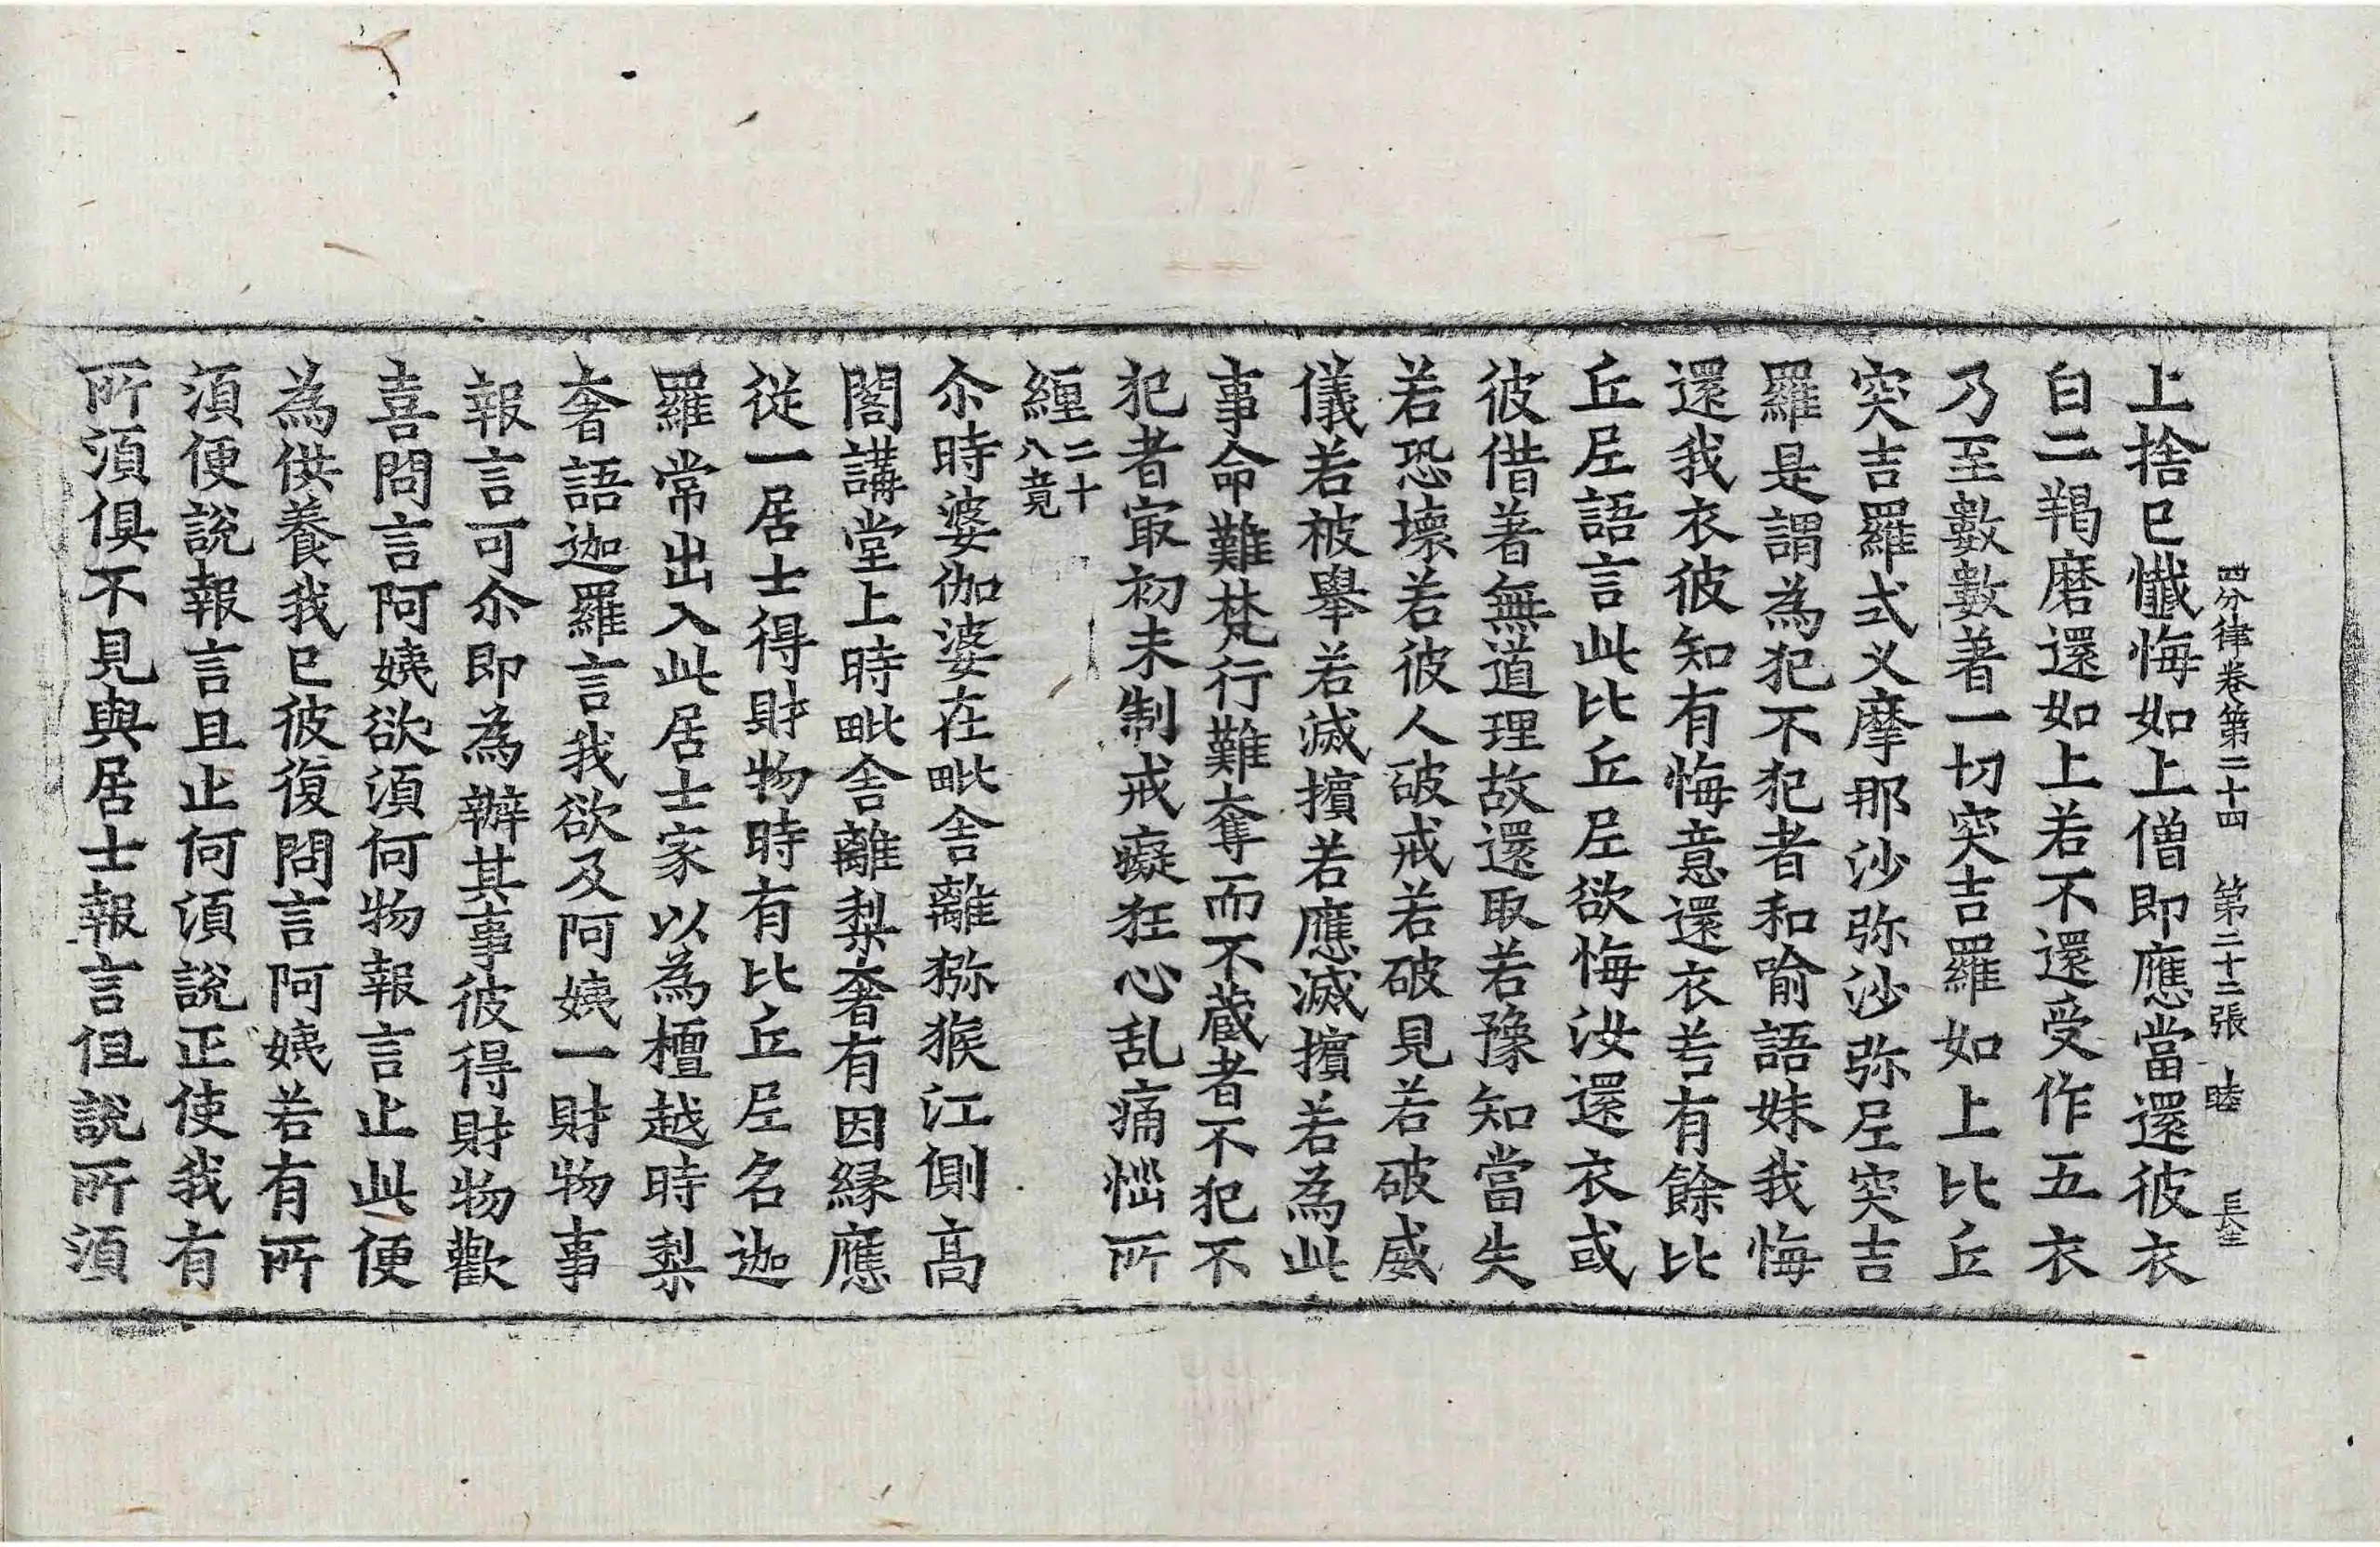 四分律卷第二十四　第二十二張　睦　長生
上捨已懺悔如上僧即應當還彼衣
白二羯磨還如上若不還受作五衣
乃至數數著一切突吉羅如上比丘
突吉羅式叉摩那沙弥沙弥尼突吉
羅是謂為犯不犯者和喻語妹我悔
還我衣彼知有悔意還衣若有餘比
丘尼語言此比丘尼欲悔汝還衣或
彼借著無道理故還取若豫知當失
若恐壞若彼人破戒若破見若破威
儀若被舉若滅擯若應滅擯若為此
事命難梵行難奪而不藏者不犯不
犯者㝡初未制戒癡狂心乱痛惱所
纏二十八竟
尒時婆伽婆在毗舍離猕猴江側高
閣講堂上時毗舍離梨奢有因緣應
從一居士得財物時有比丘尼名迦
羅常出入此居士家以為檀越時梨
奢語迦羅言我欲及阿姨一財物事
報言可尒即為辦其事彼得財物歡
喜問言阿姨欲湏何物報言止此便
為供養我已彼復問言阿姨若有所
湏便說報言且止何湏說正使我有
所湏俱不見與居士報言但說所湏